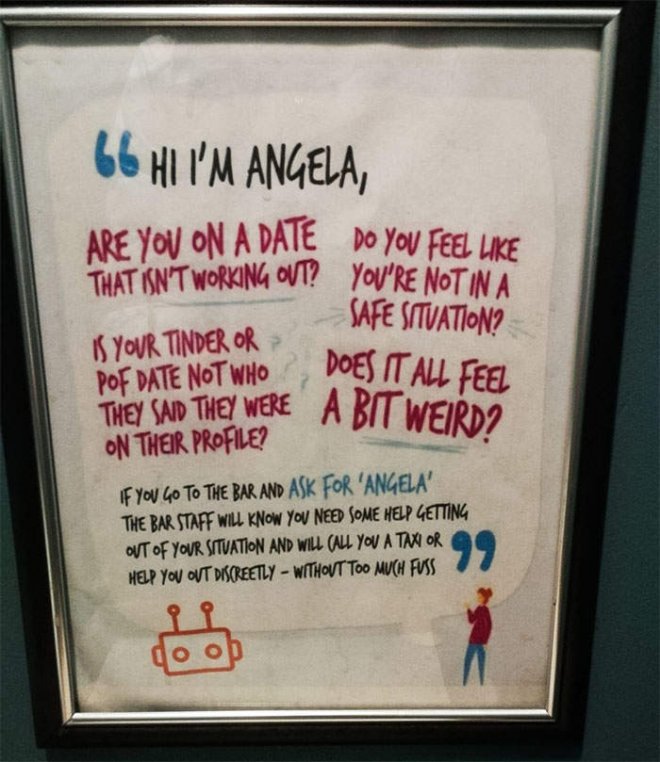 “ HI I'M ANGELA,
ARE YOU ON A DATE
THAT ISN'T WORKING OUT?
DO YOU FEEL LIKE
YOU'RE NOT IN A
SAFE SITUATION?
IS YOUR TINDER OR
POF DATE NOT WHO
THEY SAID THEY WERE
ON THEIR PROFILE?
DOES IT ALL FEEL
A BIT WEIRD?
IF YOU GO TO THE BAR AND ASK FOR 'ANGELA'
THE BAR STAFF WILL KNOW YOU NEED SOME HELP GETTING
OUT OF YOUR SITUATION AND WILL CALL YOU A TAXI OR
HELP YOU OUT DISCREETLY – WITHOUT TOO MUCH FUSS ”